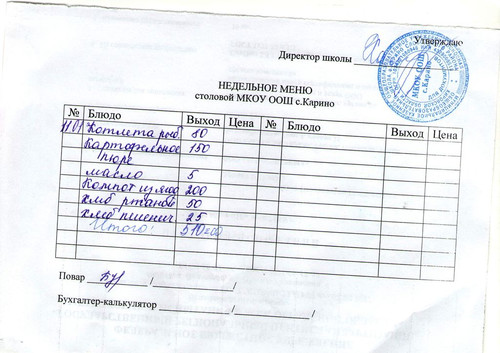 Утверждаю
Директор школы
НЕДЕЛЬНОЕ МЕНЮ
столовой МКОУ ООШ с.Карино
№ Блюдо Выход Цена № Блюдо Выход Цена
11.01 Котлета рыб 80
Картофельное 150
пюре
масло 5
Компот из яго 200
хлеб ржаной 50
хлеб пшенич 25
Итого: 510
Повар
Бухгалтер-калькулятор
МКОУ ООШ
с.Карино